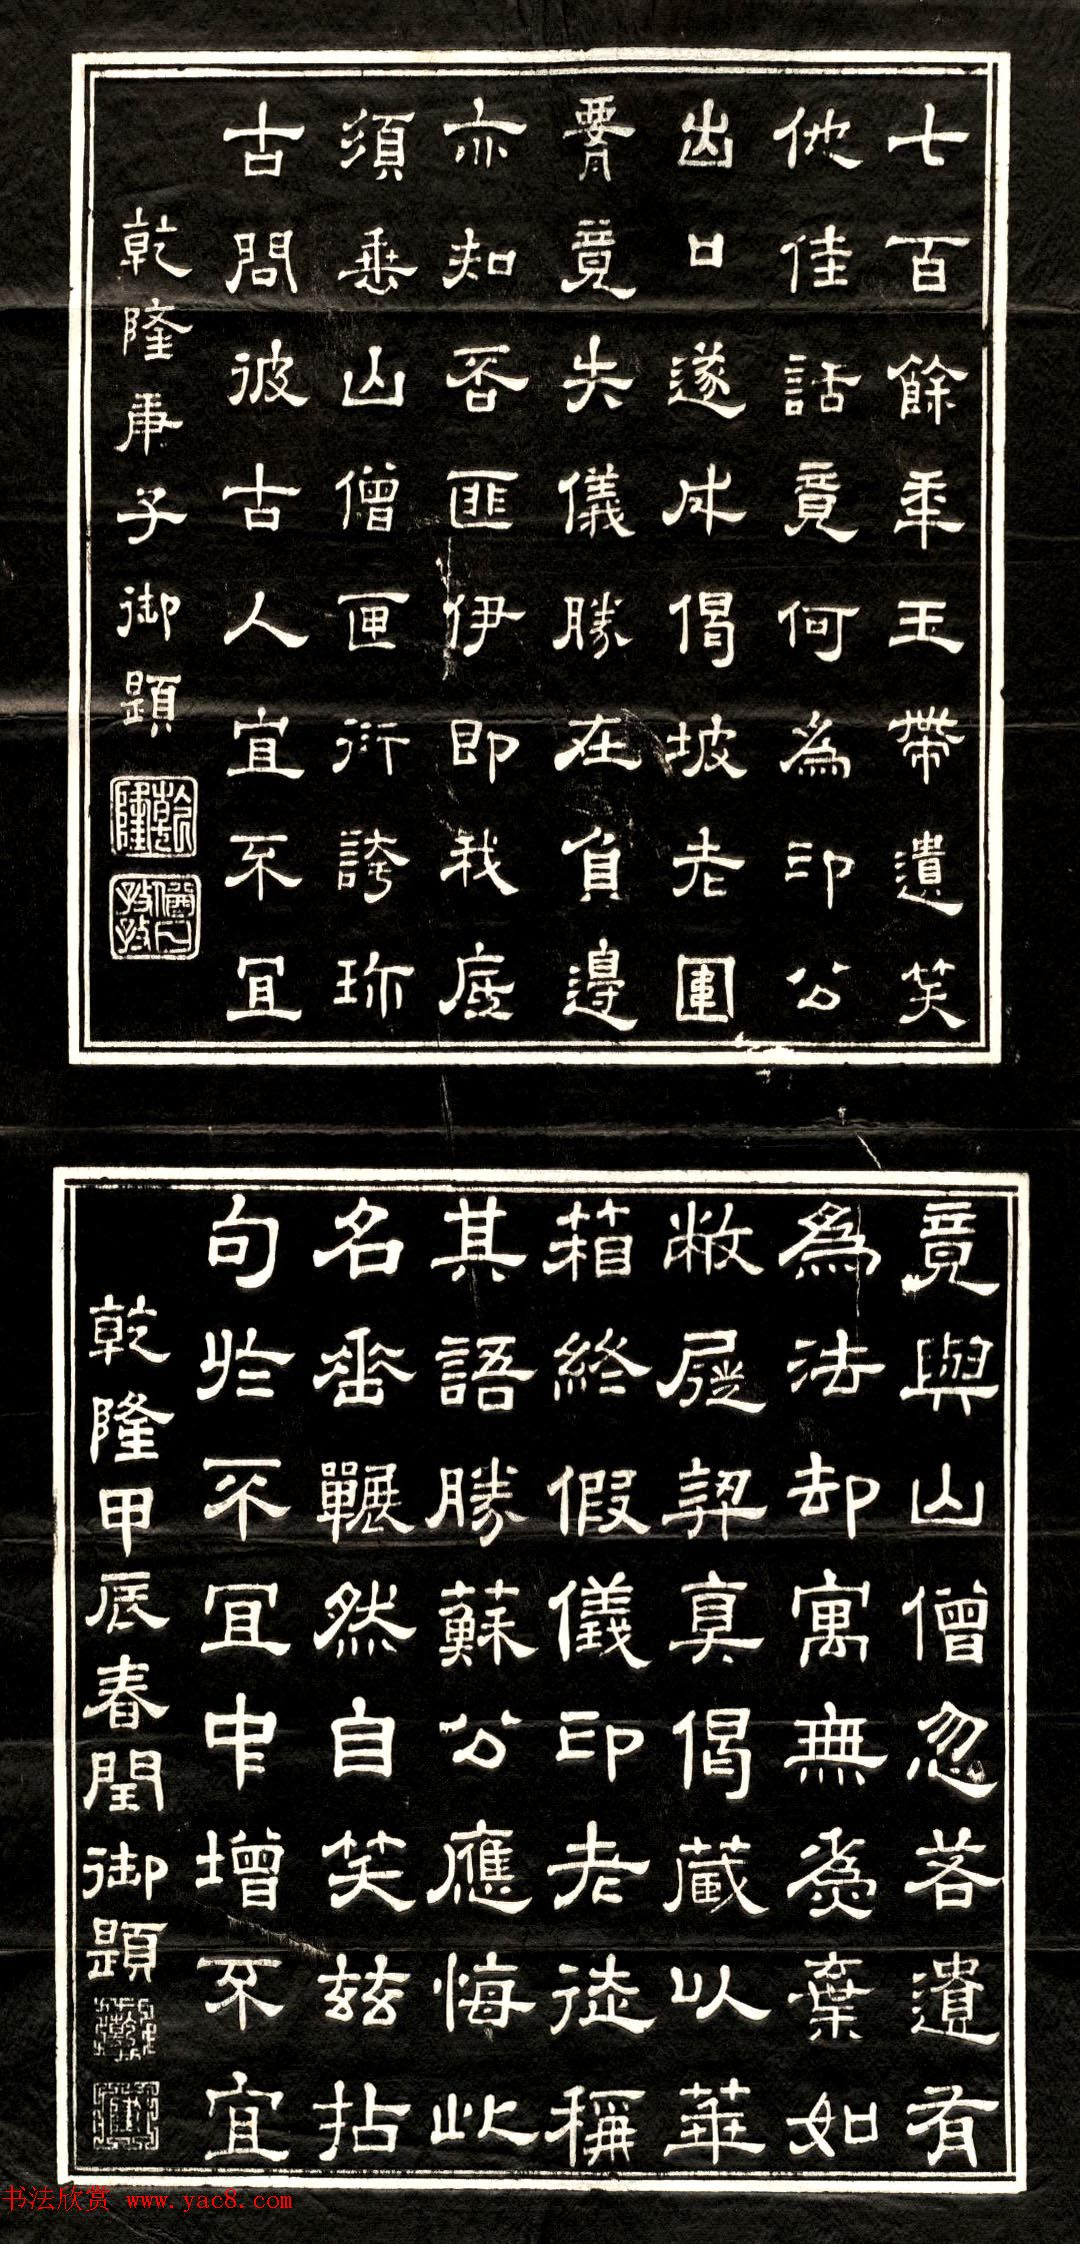 七百餘年玉帶遺笑
他佳話竟何為印公
出口遂成偈坡老圍
腰竟失儀勝在負邊
亦知否匪伊即我底
須山僧匣衍誇珎
古問彼古人宜不宜
乾隆庚子御題
乾隆
猶日孜孜
竟與山僧忽若遺有
為法却寓無為棄如
敝屣契真偈藏以華
箱終假儀印老徒稱
其語勝蘇公應悔此
名垂囅然自笑兹拈
句於不宜中增不宜
乾隆甲辰春閏御題
书法欣赏 www.yac8.com